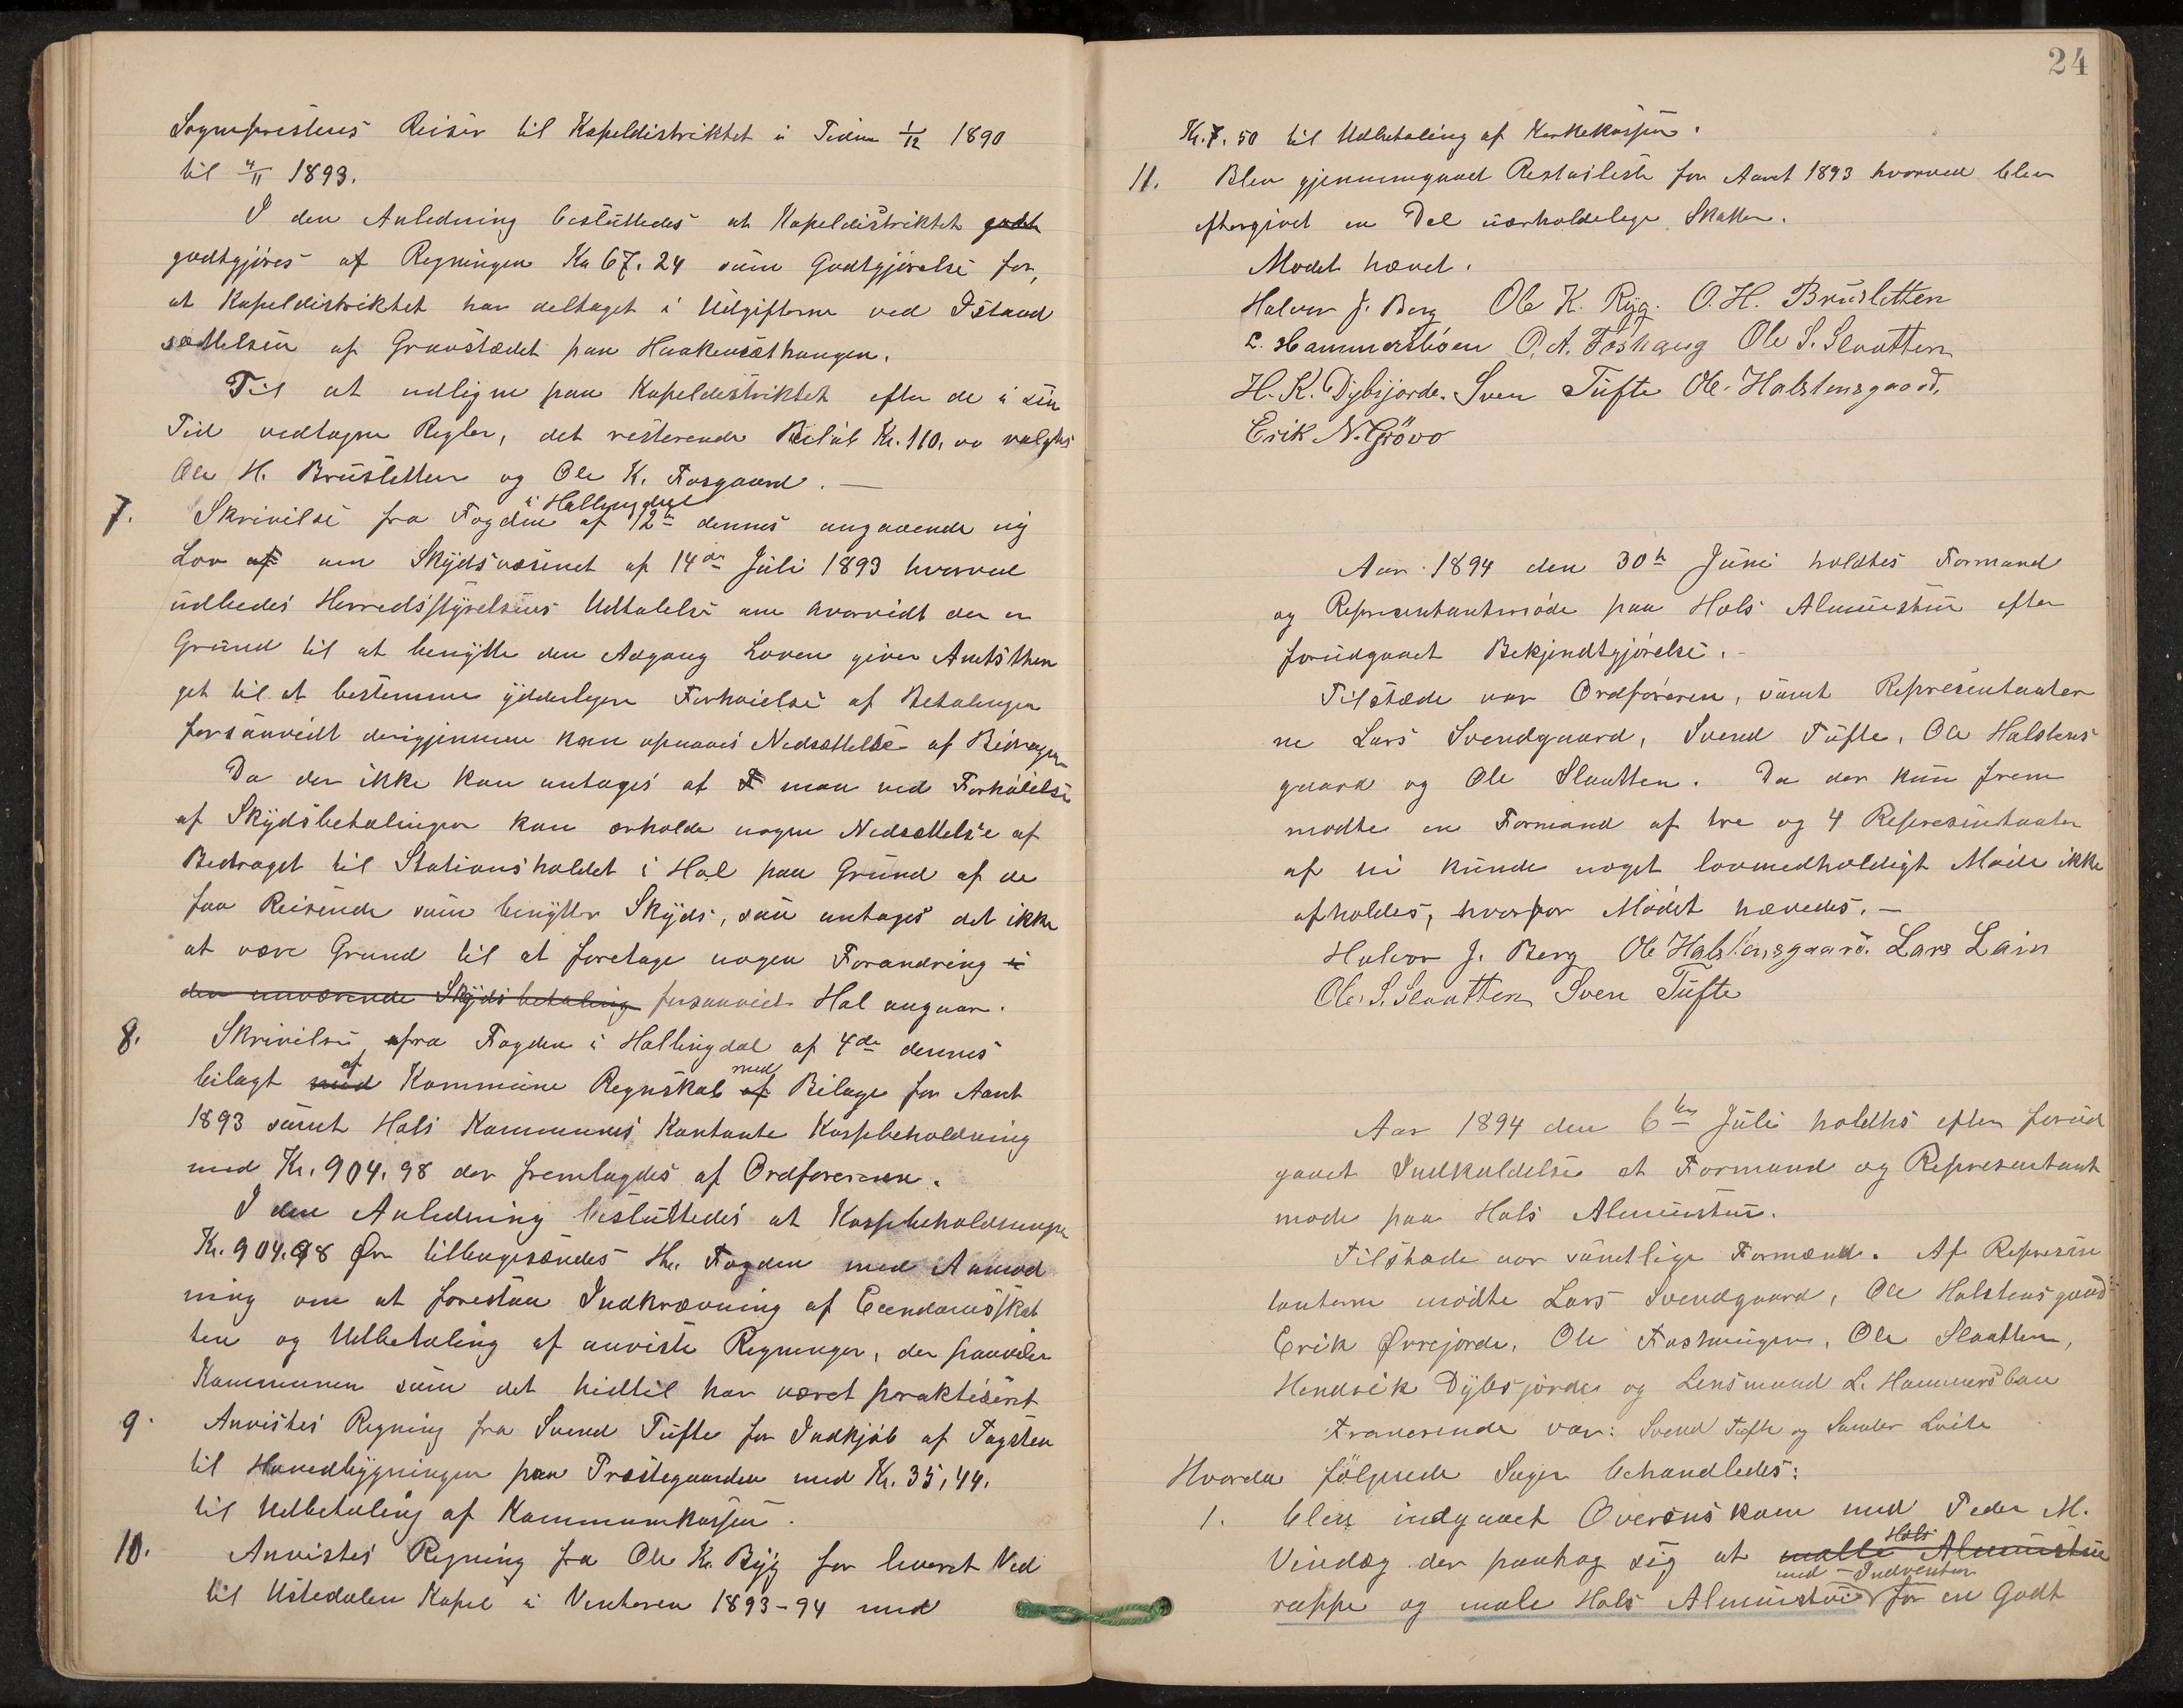 Sognepresten's Reiser til Kapeldistriktet i Tiden 1/12 1890
til 4/11 1893.
I den Anledning besluttedes at Kapeldistriktet godt
godtgjöres af Regningen Kr 67.24 som Godtgjörelse for,
at Kapeldistriktet har deltaget i Udgifterne ved Istand
sættelsen af Gravstædet paa Haakensæthaugen.
Til at udligne paa Kapeldistriktet efter de i sin
Tid vedtagne Regler, det resterende Belöb Kr. 110.00 valgtes
Ole H. Brusletten og Ole K. Fosgaard. —
i Hallingdal
7. Skrivelse fra Fogden af 12te dennes angaaende ny
Lov af om Skydsvæsenet af 14de Juli 1893 hvorved
udbedes Herredsstyrelsens Udtalelse om hvorvidt der er
Grund til at benytte den Adgang Loven giver Amtsthin
get til at bestemme yderligere Forhöielse af Betalingen
forsaavidt derigjennem kan opnaaes Nedsættelse af Bidragen
Da der ikke kan antages at F man ved Forhöielse
af Skydsbetalingen kan erholde nogen Nedsættelse af
Bedraget til Stationsholdet i Hol paa Grund af de
faa Reisende som benytter Skyds, saa antages det ikke
at være Grund til at foretage nogen Forandring i
den nuværende Skydsbetaling forsaavidt Hol angaar.
8. Skrivelse fra Fogden i Hallingdal af 4de dennes
af med
bilagt med Kommune Regnskab af Bilage for Aaret
1893 samt Hols Kommunes Kontante Kassebeholdning
med Kr. 904.98 der fremlagdes af Ordföreren.
I den Anledning besluttedes at Kassebeholdningen
Kr. 904.98 Øre tilbagesendes Hr. Fogden med Anmod
ning om at forestaa Indkrævning af Eiendomsskat
ten og Udbetaling af anviste Regninger, der paahviler
Kommunen som det hidtil har været praktiseret
9. Anvistes Regning fra Svend Tufte for Indkjöb af Tagsten
til Hovedbygningen paa Præstegaarden med Kr. 35,44.
til Udbetaling af Kommunekassen.
10. Anvistes Regning fra Ole K. Ryg for leveret Ved
til Ustedalen Kapel i Vinteren 1893-94 med
24
Kr. 7.50 til Udbetaling af Kirkekassen.
11. Blev gjennemgaaet Restanseliste for Aaret 1893 hvorved blev
eftergivet en Del uerholdelige Skatter.
Mödet hævet.
Halvor J. Berg Ole K. Ryg. O. H. Brusletten
L. Hammersböen O. A. Foshaug Ole S. Slaatten
H. K. Dybsjorde. Sven Tufte Ole Halstensgaard.
Erik N. Grövo
Aar 1894 den 30te Juni holdtes Formand
og Representantmöde paa Hols Almuestue efter
forudgaaet Bekjendtgjörelse. -
Tilstæde var Ordföreren, samt Representanter
ne Lars Svendgaard, Svend Tufte, Ole Halstens
gaard og Ole Slaatten. Da der kun frem
mödte en Formand af tre og 4 Representanter
af ni kunde noget lovmedholdigt Möde ikke
afholdes, hvorfor Mödet hævedes. —
Halvor J. Berg Ole Halstensgaard. Lars Lain
Ole S. Slaatten Sven Tufte
Aar 1894 den 6te Juli holdtes efter forud
gaaet Indkaldelse et Formand og Representant
möde paa Hols Almuestue.
Tilstæde var samtlige Formænd. Af Represen
tanterne mödte Lars Svendgaard, Ole Halstensgaard
Erik Övrejorde, Ole Foshaugen, Ole Slaatten,
Hendrik Dybsjorde og Lensmand L. Hammersböen
Fraværende var: Svend Tufte og Sander Lvite
Hvorda fölgende Sager behandledes:
1. blev indgaaet Overenskom med Peder M.
Hols
Vindæg der paatog sig at malle Almuestue
med Indventar
rappe og male Hols Almuestue for en Godt